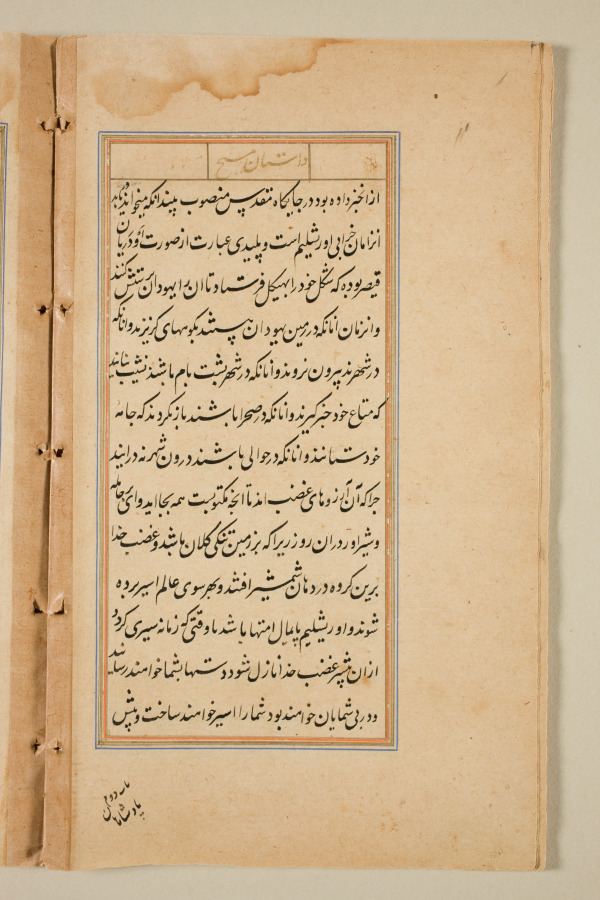 داستان مسیح
ازان خبر داده بود در جایگاه مقدس منصوب بیند انکه میخواند دریابد
انزمان خرابی اورشلیم است و پلیدی عبارت از صورت
قیصر بوده که شکل خود را بهیکل فرستاد تا ان را یهودان پرستش کنند
وانزمان انانکه در زمین یهودان هستند بکوههای گریزند وانانکه
در شهرند بیرون نروند وانانکه در شهر پشت بام باشند نشیب نیایند
که متاع خود خبر گیرند وانانکه در صحرا باشند باز نگردند که جامه
خود ستانند وانانکه در حوالی باشند درون شهر نه درایند
چراکه آن روزهای غضب اند تا انچه مکتوبست همه بجا اید وای بر حامله
و شیراور دران روز زیراکه بر زمین تنگی کلان باشد و غضب خدا
برین گروه در دهان شمشیر افتند و بهر سوی عالم اسیر برده
شوند و اورشلیم پایمال امتها باشد تا وقتی که زمانه سپری گردد
ازان پیشتر غضب خدا نازل شود دستها بشما خواهند رسانید
و در پی شمایان خواهند بود شما را اسیر خواهند ساخت و پیش
پادشاهان